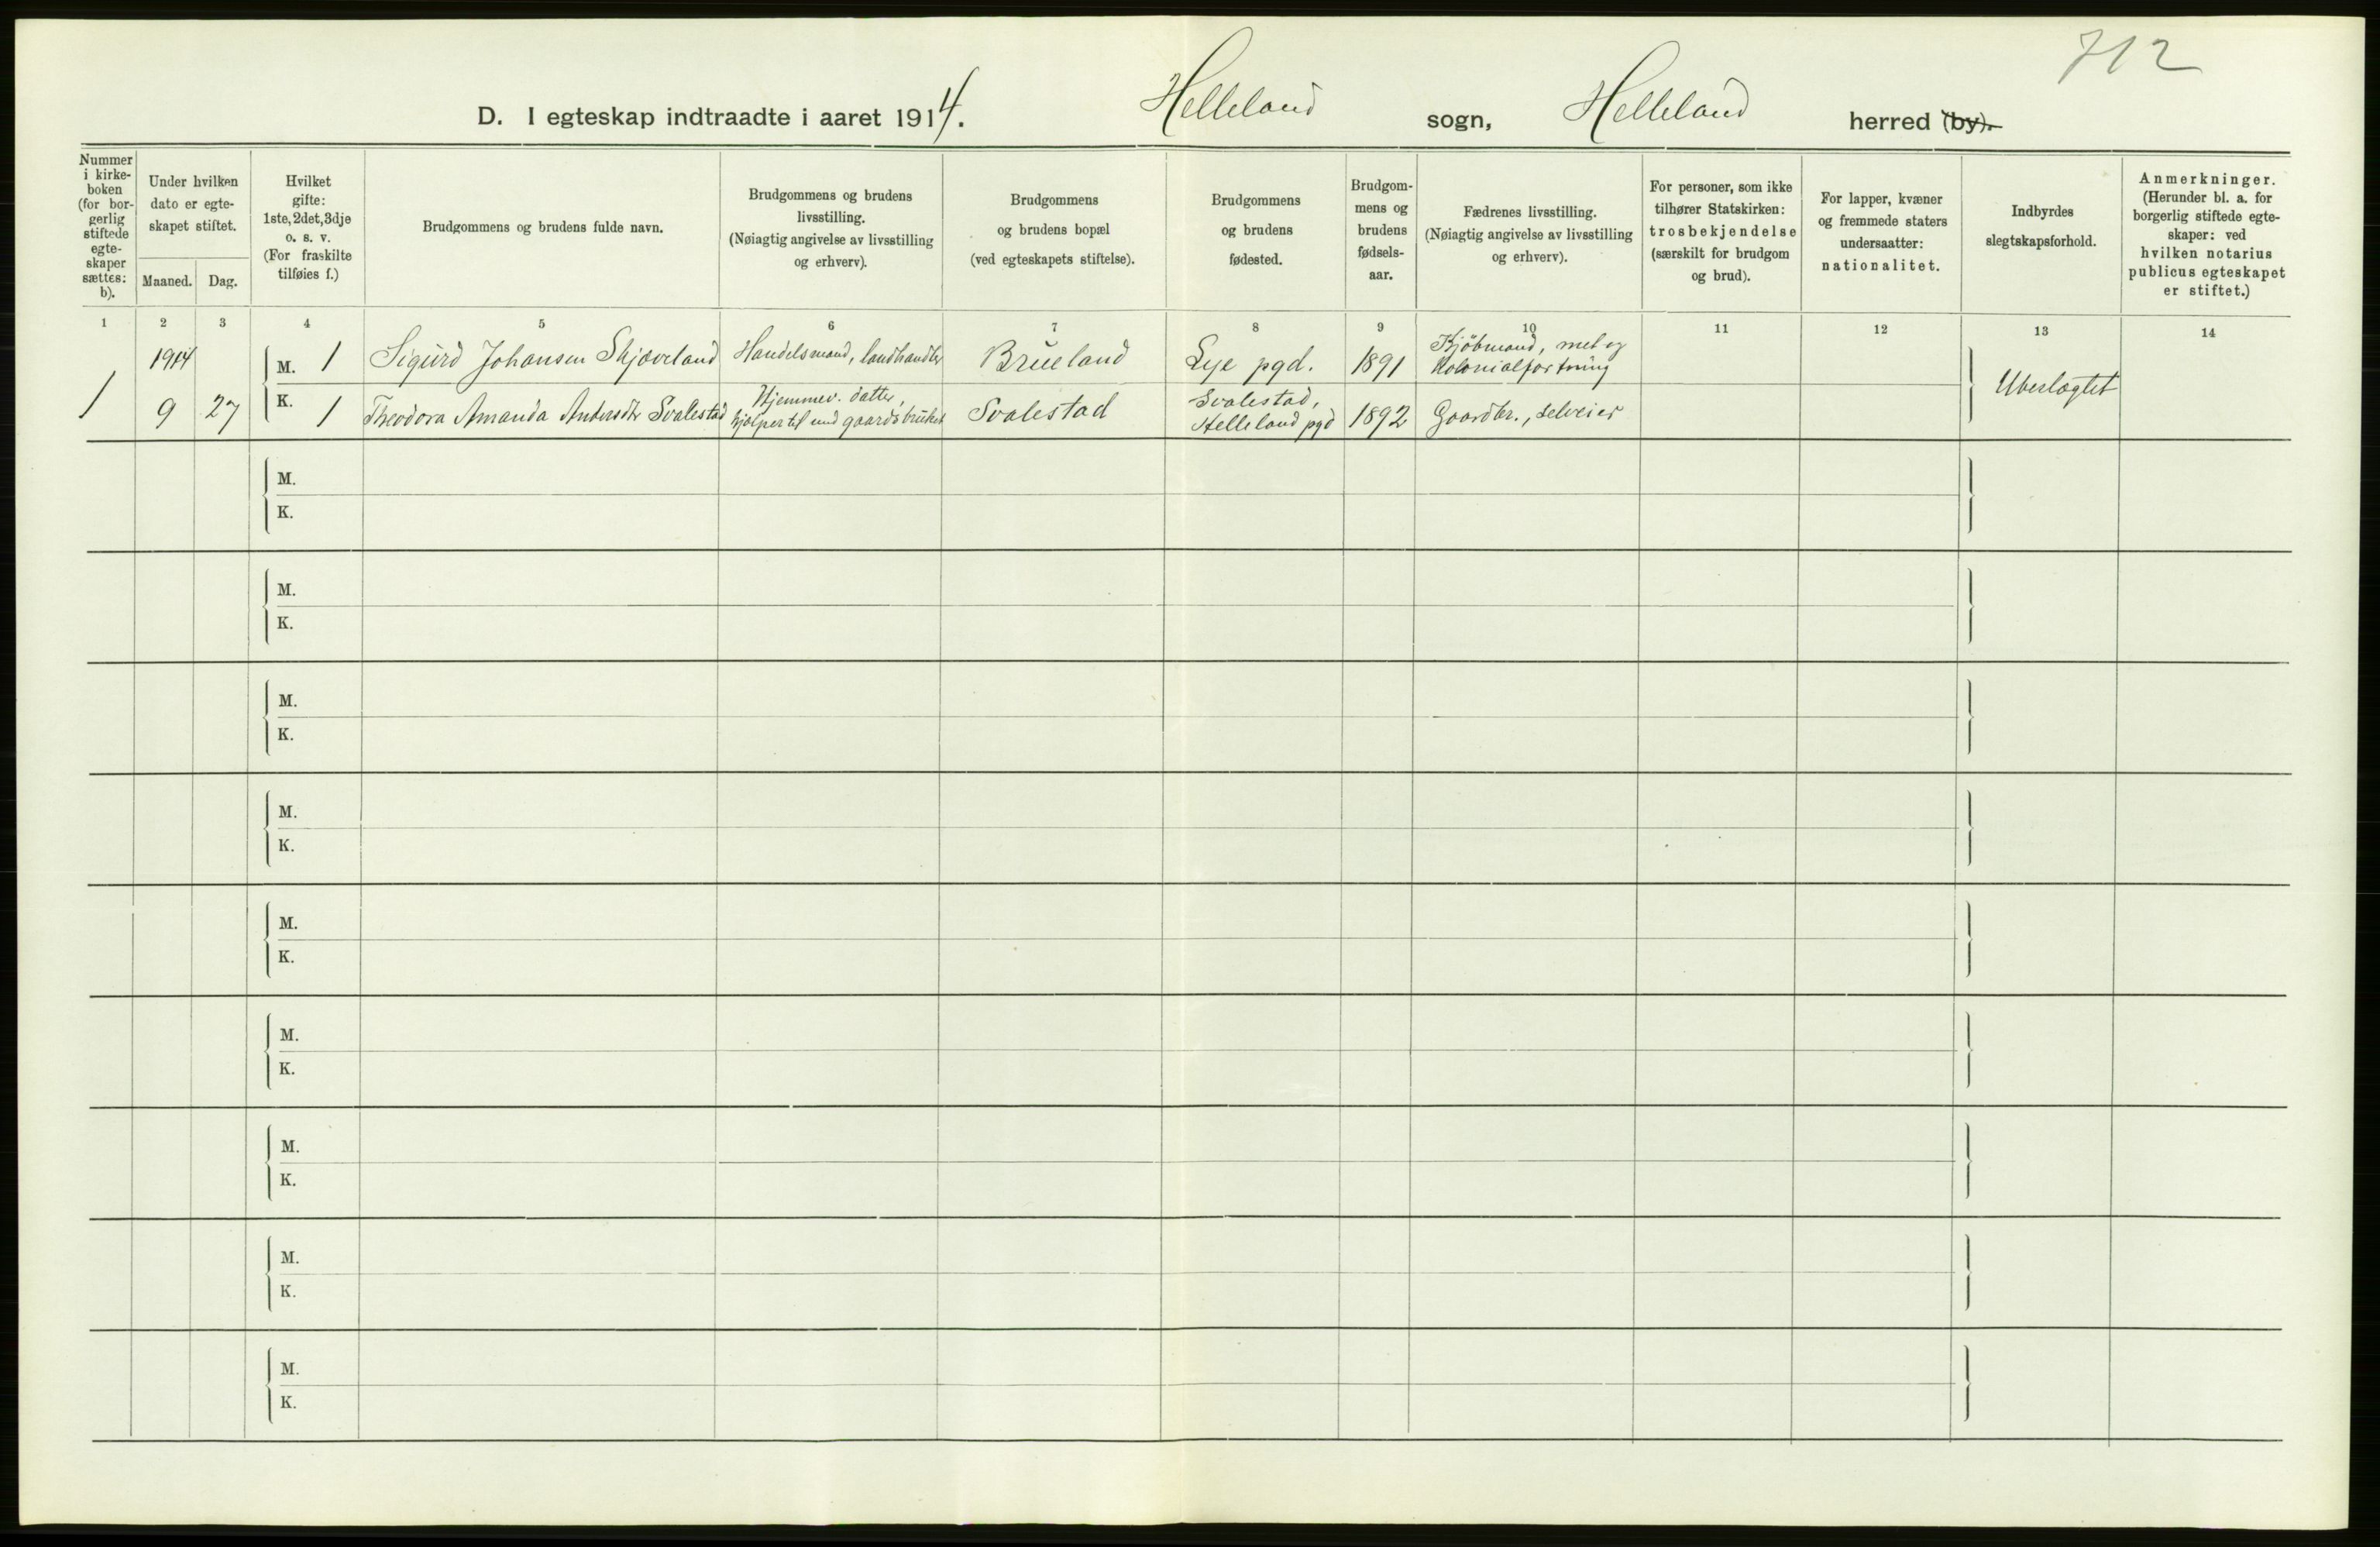 712
D. I egteskap indtraadte i aaret 1914. Helleland sogn, Helleland herred (by).
Nummer
i kirke-
boken
(for bor-
gerlig
stiftede
egte-
skaper
sættes:
b).
Under hvilken
dato er egte-
skapet stiftet.
Maaned. Dag.
Hvilket
gifte:
1ste, 2det, 3dje
o. s. v.
(For fraskilte
tilføies f.)
Brudgommens og brudens fulde navn.
Brudgommens og brudens
livsstilling.
(Nøiagtig angivelse av livsstilling
og erhverv).
Brudgommens
og brudens bopæl
(ved egteskapets stiftelse).
Brudgommens
og brudens
fødested.
Brudgom-
mens og
brudens
fødsels-
aar.
Fædrenes livsstilling.
(Nøiagtig angivelse av livsstilling
og erhverv).
For personer, som ikke
tilhører Statskirken:
trosbekjendelse
(særskilt for brudgom
og brud).
For lapper, kvæner
og fremmede staters
undersaatter:
nationalitet.
Indbyrdes
slegtskapsforhold.
Anmerkninger.
(Herunder bl. a. for
borgerlig stiftede egte-
skaper: ved
hvilken notarius
publicus egteskapet
er stiftet.)
1 2 3 4 5 6 7 8 9 10 11 12 13 14
1914
M. 1 Sigurd Johansen Skjæveland Handelsmand, landhandler Brueland Lye pgd. 1891 Kjøbmand, mel og
Kolonialforretning
1 9 27
K. 1 Theodora Amanda Andersdtr Svalestad Hjemmev. datter,
hjelper til med gaardsbruket Svalestad Svalestad,
Helleland pgd 1892 Gaardbr., selveier
Ubeslægtet
M.
K.
M.
K.
M.
K.
M.
K.
M.
K.
M.
K.
M.
K.
M.
K.
M.
K.